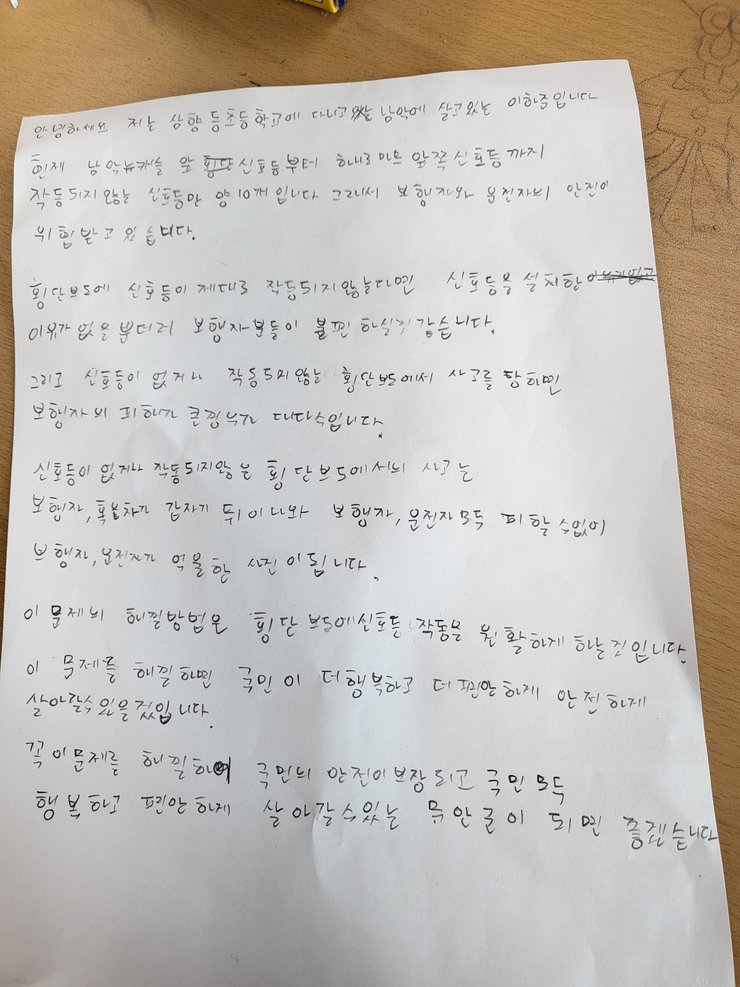 안녕하세요 저는 삼향동초등학교에 다니고 남악에 살고있는 이하줌입니다
현제 남악뉴캐슬 앞 신호등부터 하나로마트 앞쪽신호등까지
작동되지 않는 신호등만 약10개입니다 그래서 보행자와 운전자의 안전이
위협받고 있습니다.
횡단보도에 신호등이 제대로 작동되지않는다면 신호등을 설치한
이유가 없을뿐더러 보행자분들이 불편하실것같습니다.
그리고 신호등이 없거나 작동되지않는 횡단보도에서 사고를당하면
보행자의 피해가 큰경우가 대다수입니다.
신호등이 없거나 작동되지않은 횡단보도에서의 사고는
보행자, 혹은차가 갑자기 튀어나와 보행자, 운전자모두 피할수없이
보행자,운전자가 억울한 사건이됩니다.
이 문제의 해결방법은 횡단보도에신호등 작동을 원활하게 하는것입니다.
이 문제를 해결하면 국민이 더행복하고 더편안하게 안전하게
살아갈수있을겄입니다.
꼭이문제를 해결하여 국민의 안전이보장되고 국민모두
행복하고 편안하게 살아갈수있는 무안군이 되면 좋겠습니다